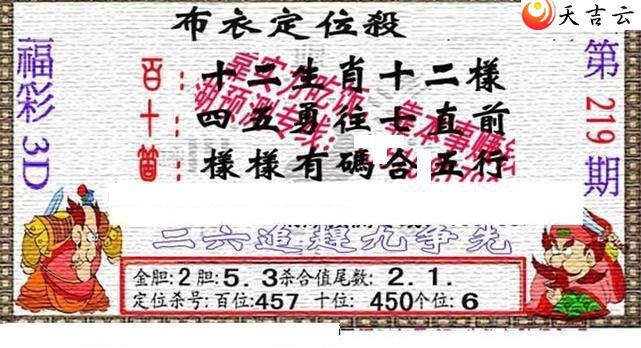 天吉云
布衣定位殺
福彩3D
第219期
百：十二生肖十二樣
十：四五勇往七直前
個：樣樣有碼合五行
二六追趕九争先
金胆:2胆:5.3杀合值尾数:2.1.
定位杀号:百位:457 十位:450个位:6